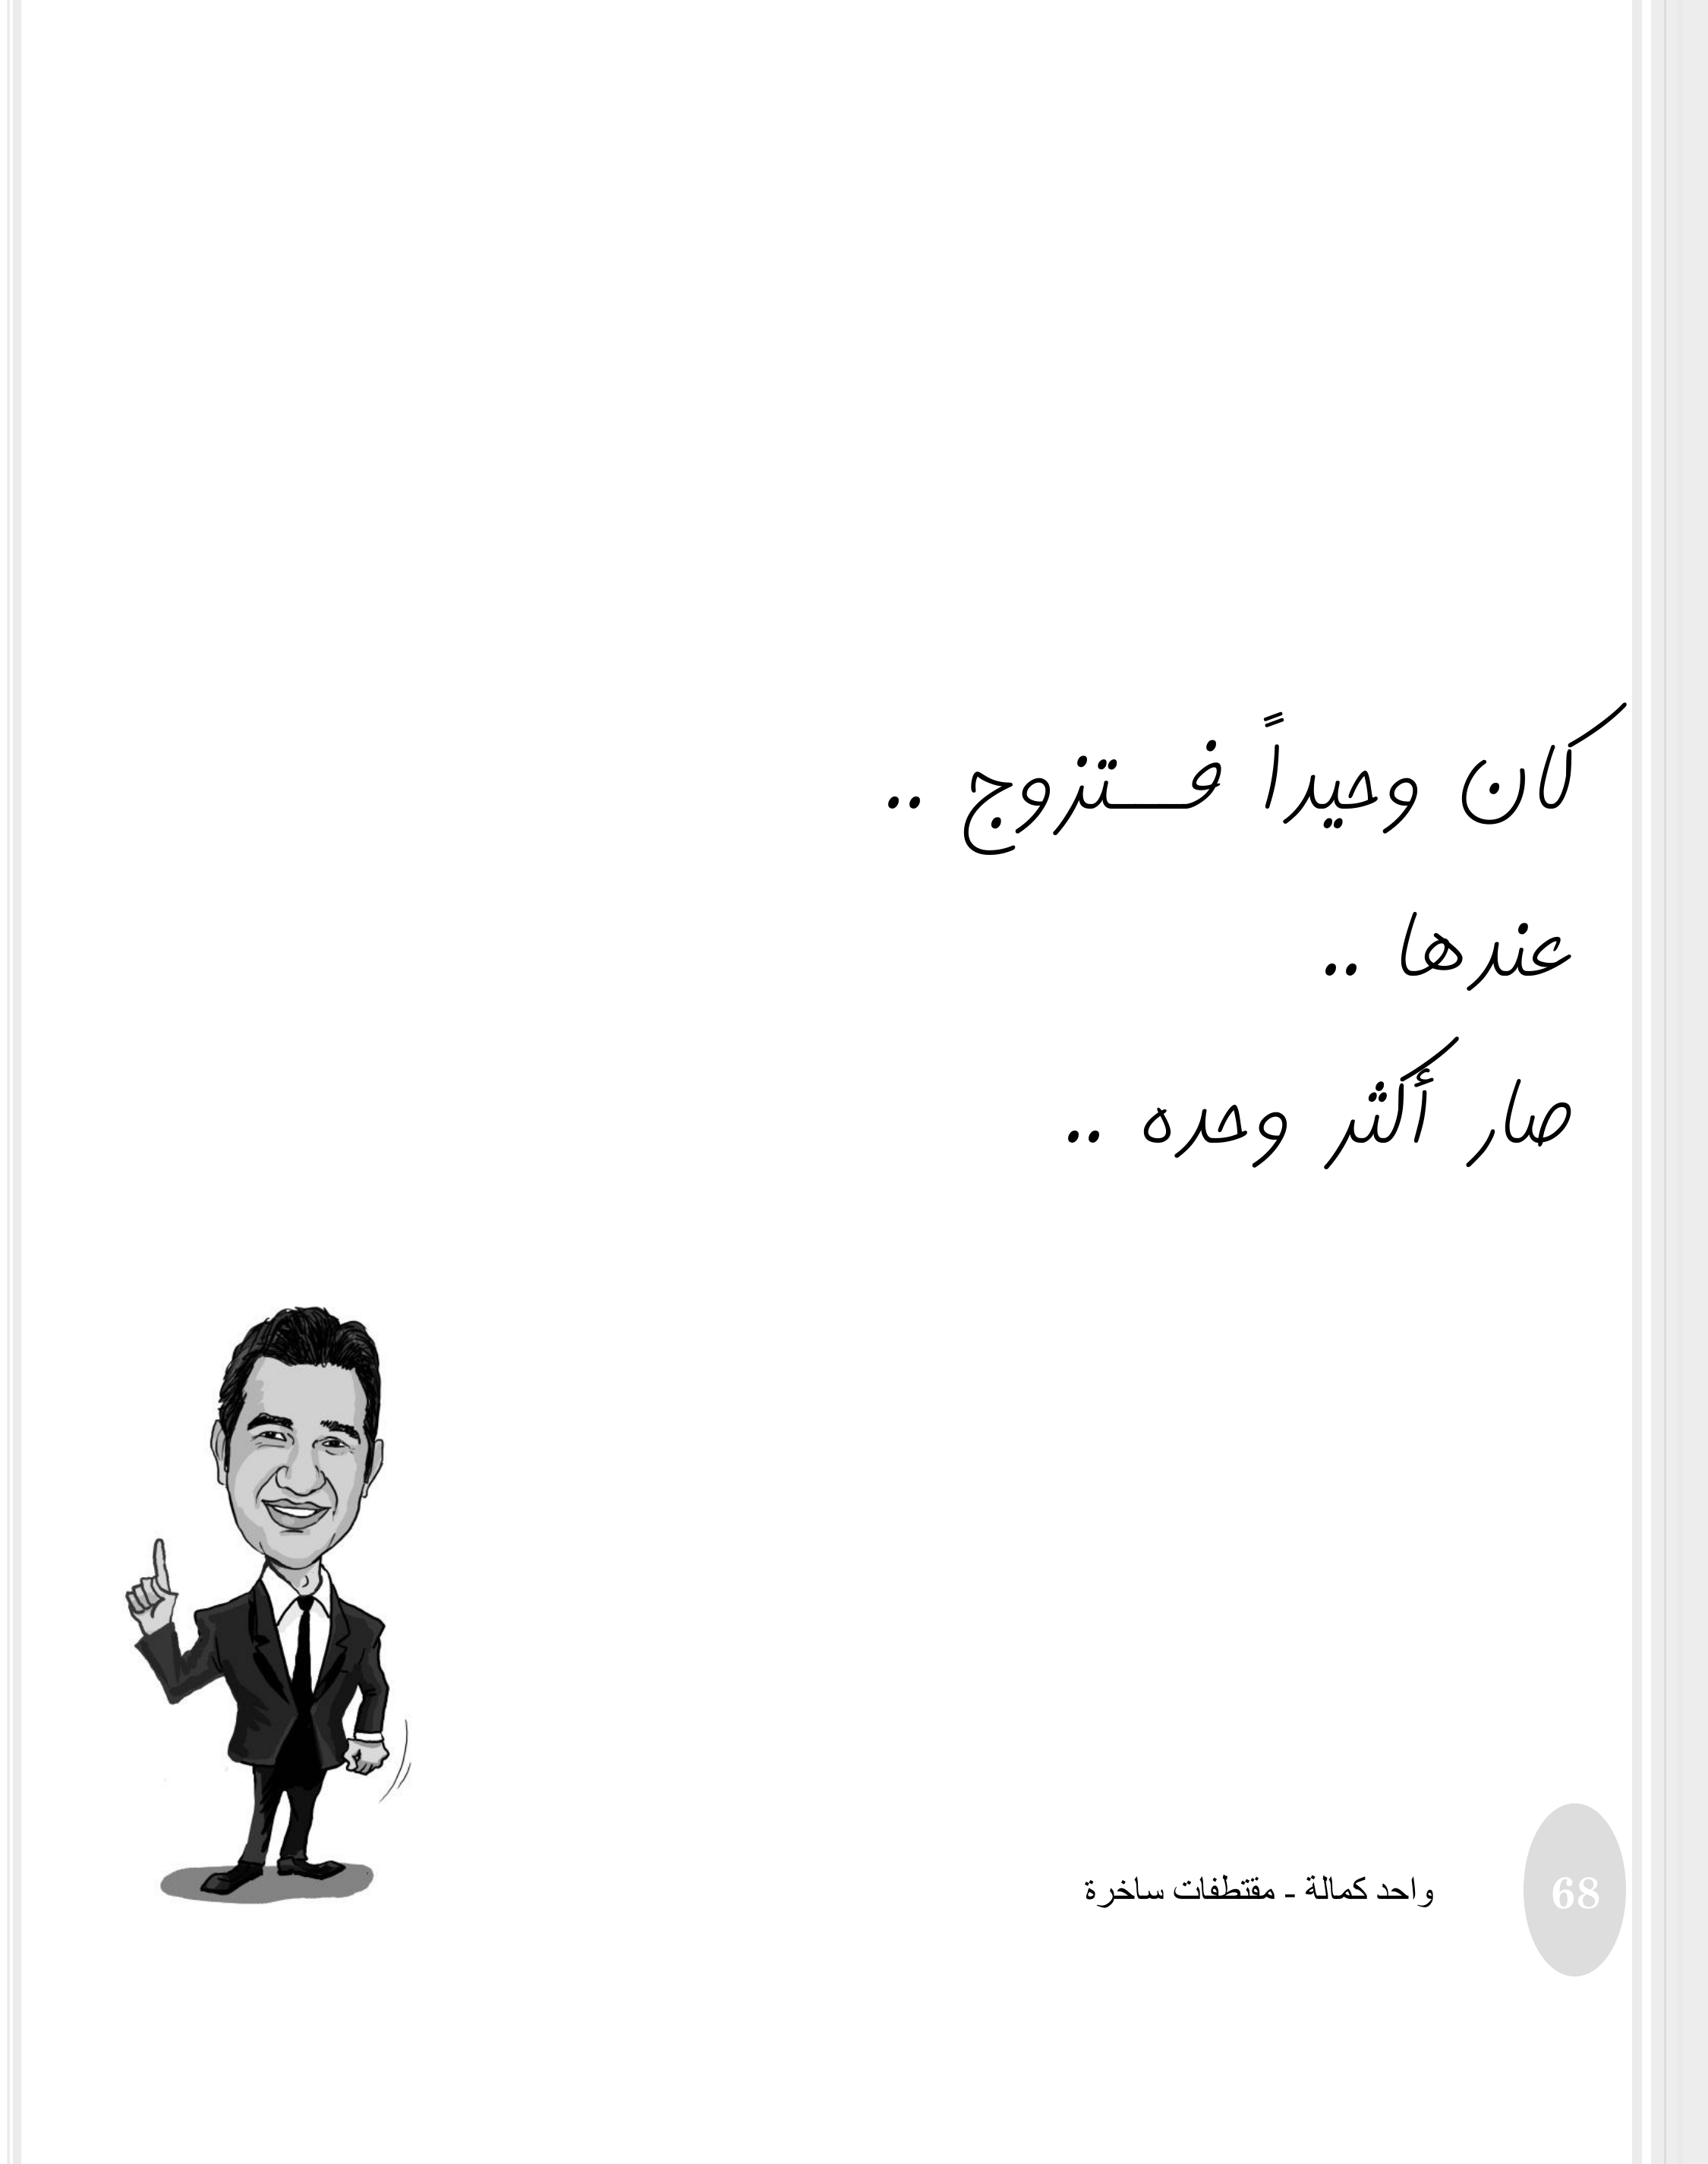 كان وحيداً فـــتزوج ..
عندها ..
صار أكثر وحده ..
واحد كمالة - مقتطفات ساخرة
68